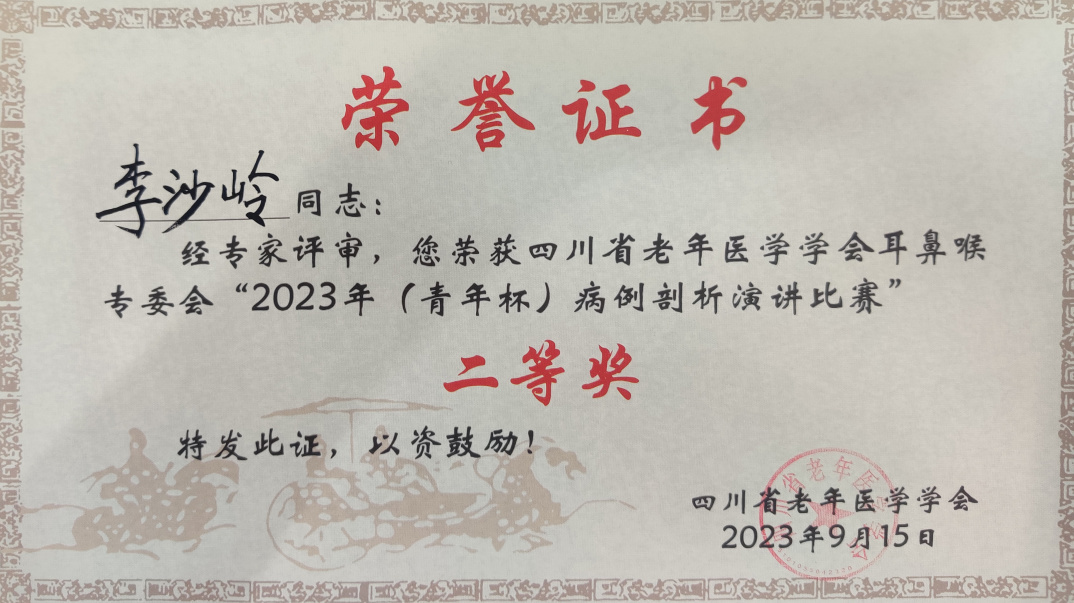 荣誉证书
李沙岭同志：
经专家评审，您荣获四川省老年医学学会耳鼻喉
专委会“2023年（青年杯）病例剖析演讲比赛”
二等奖
特发此证，以资鼓励！
四川省老年医学学会
2023年9月15日